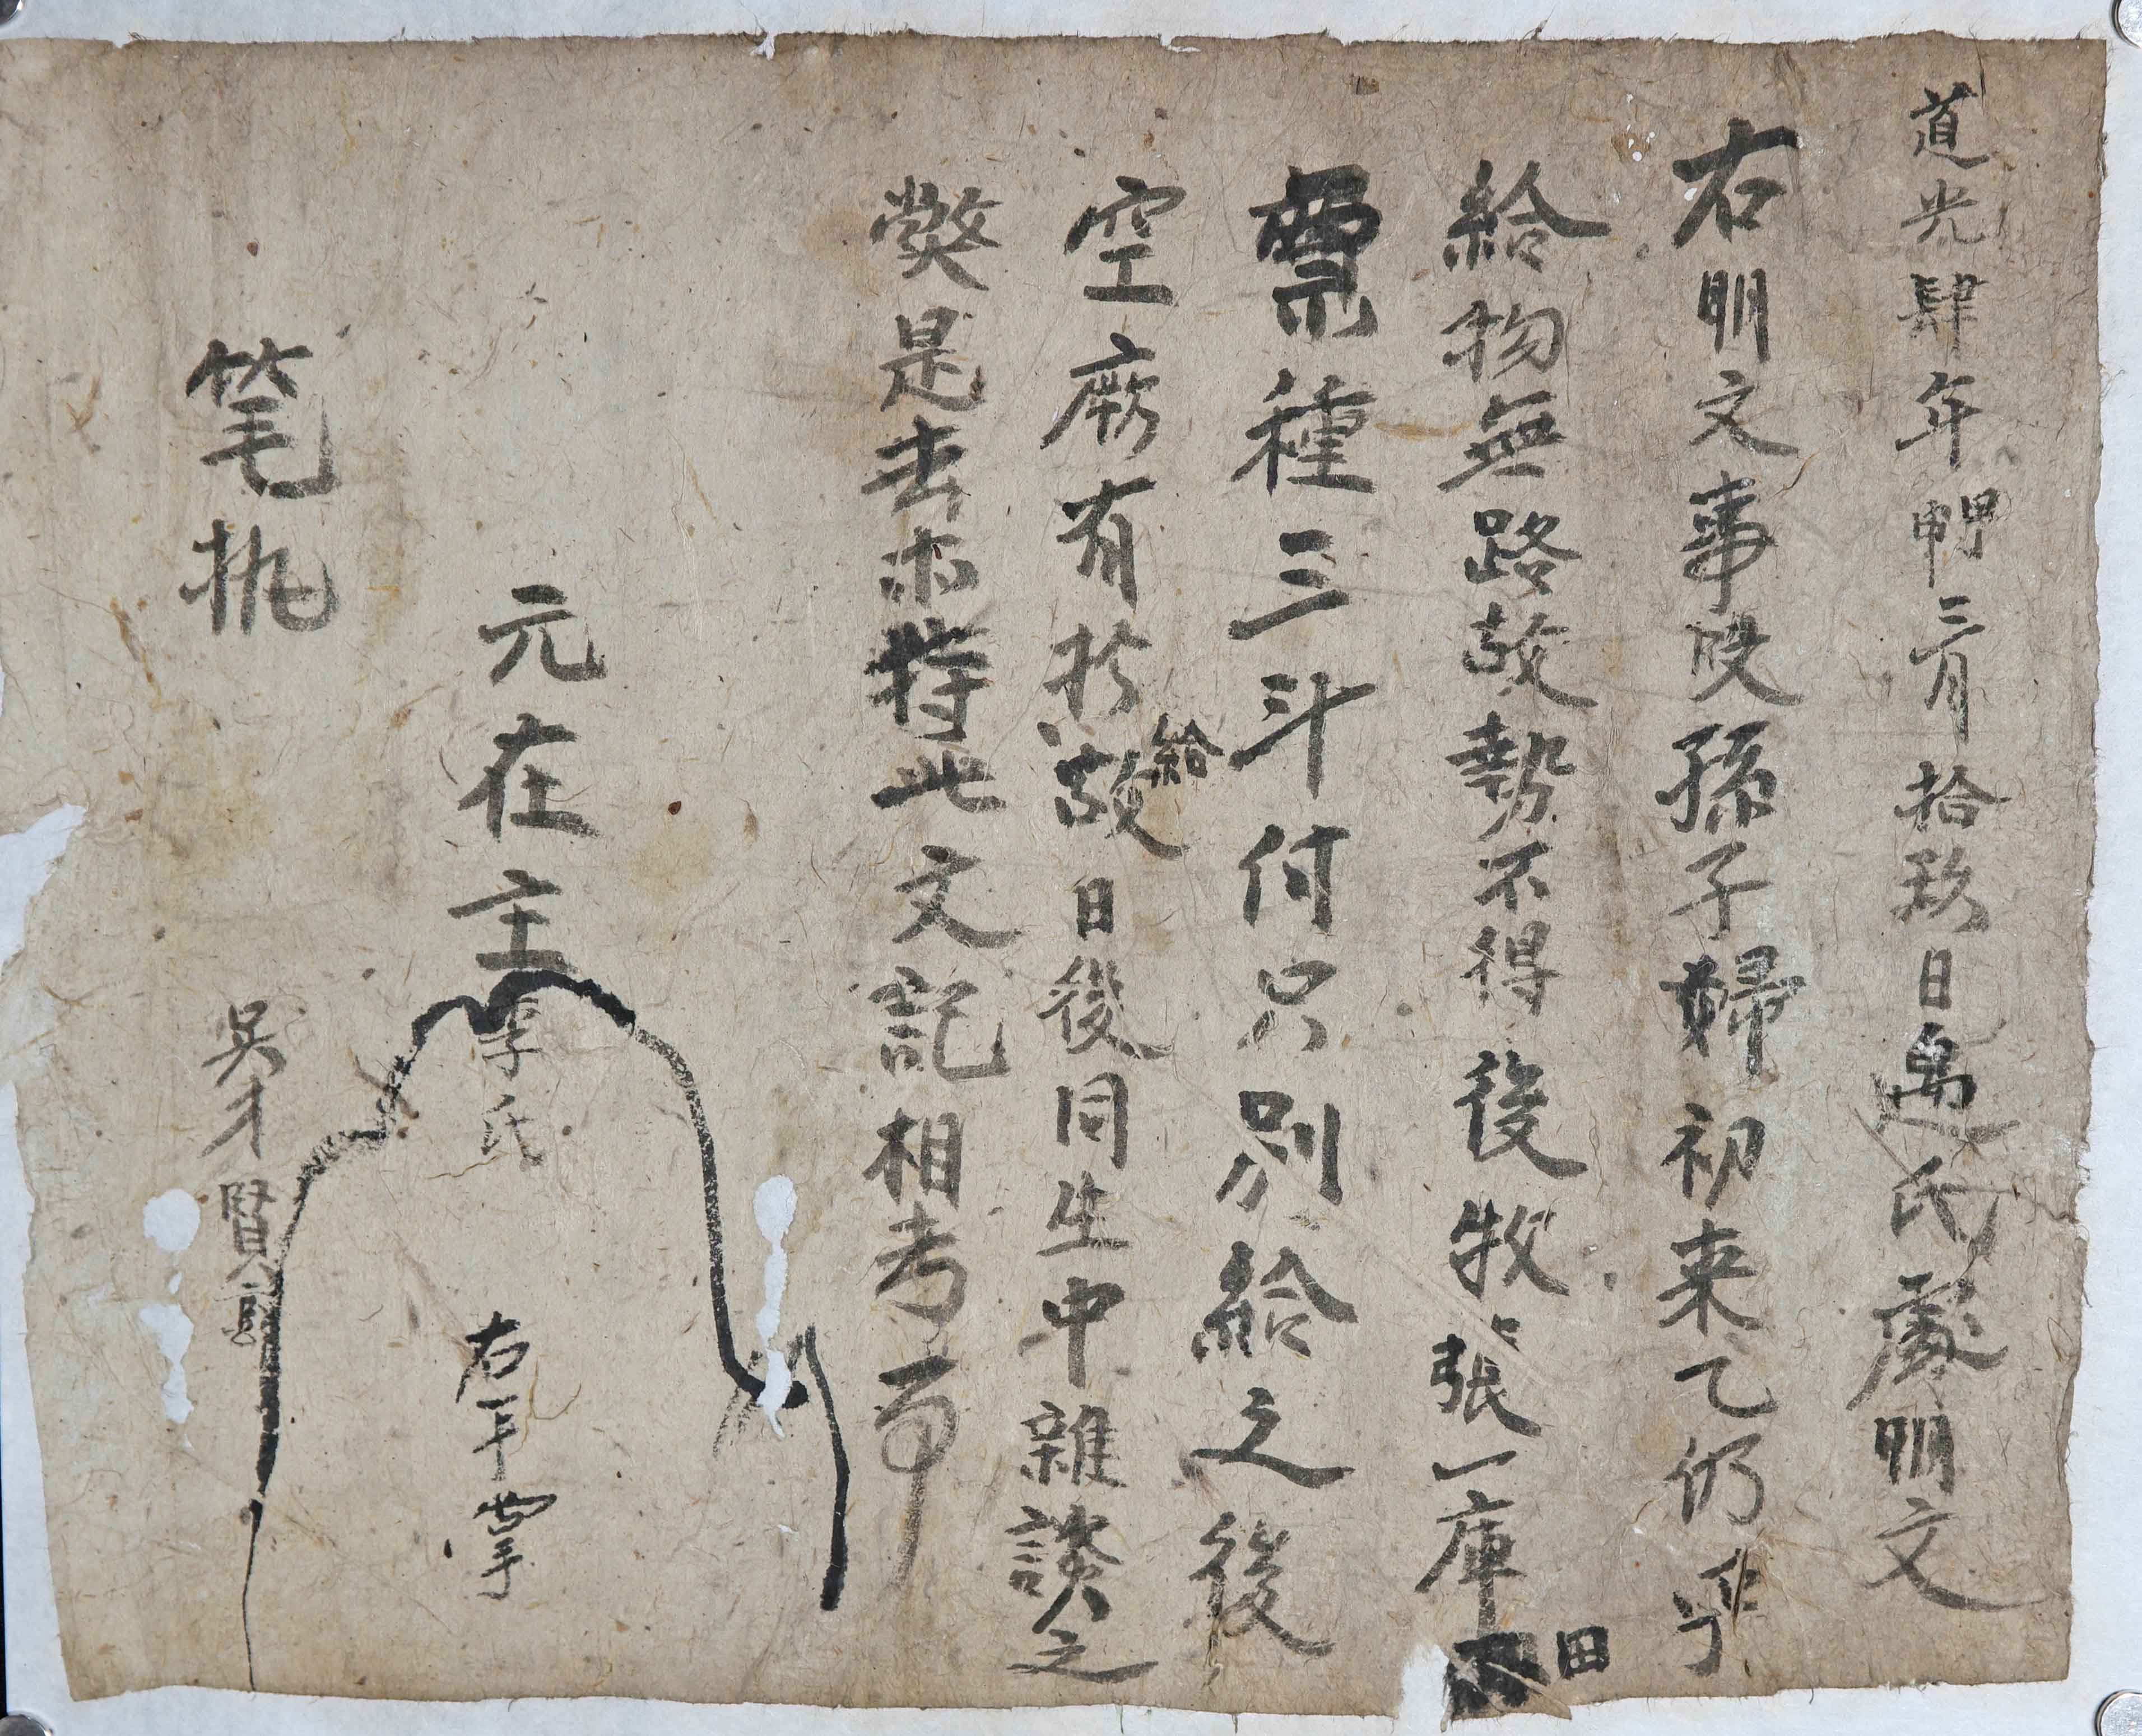 道光肆年甲申三月拾玖日禹氏處明文
右明文事段孫子婦初来乙仍乎
給物無路故勢不得後牧張一庫田
票種三斗付只別給之後
空廠有於故給日後同生中雜談之
獘是去木等持此文記相考事
元在主李氏
右手掌
笔执
吳才賢